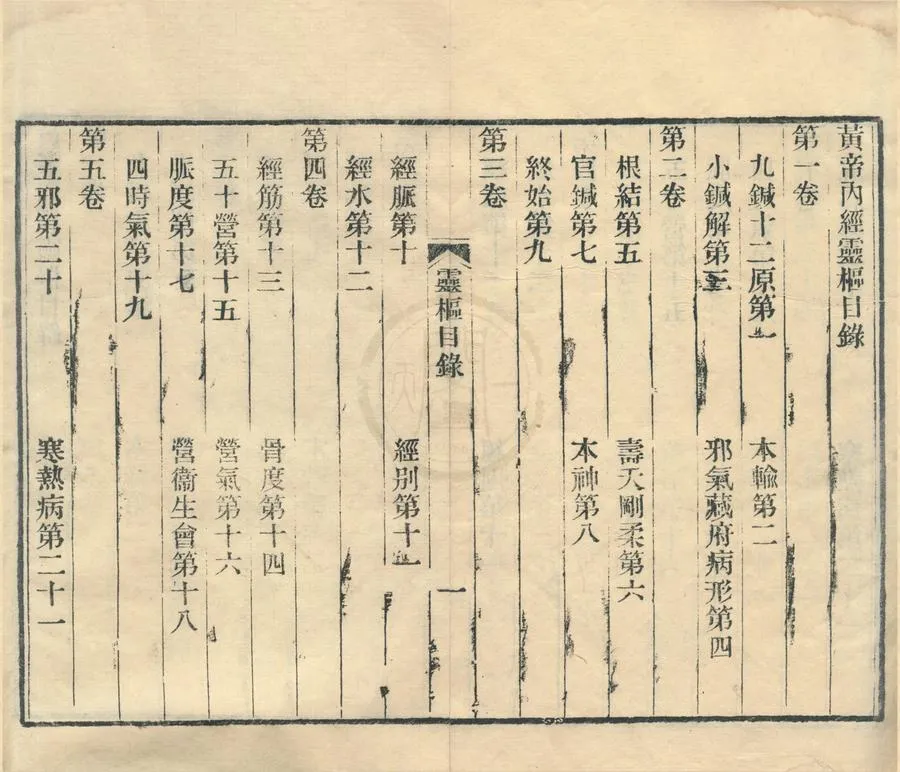 黃帝內經靈樞目錄
第一卷
九鍼十二原第一 本輸第二
小鍼解第三 邪氣藏府病形第四
第二卷
根結第五 壽夭剛柔第六
官鍼第七 本神第八
終始第九
第三卷
靈樞目錄 一
經脈第十 經別第十一
經水第十二
第四卷
經筋第十三 骨度第十四
五十營第十五 營氣第十六
脈度第十七 營衞生會第十八
四時氣第十九
第五卷
五邪第二十 寒熱病第二十一